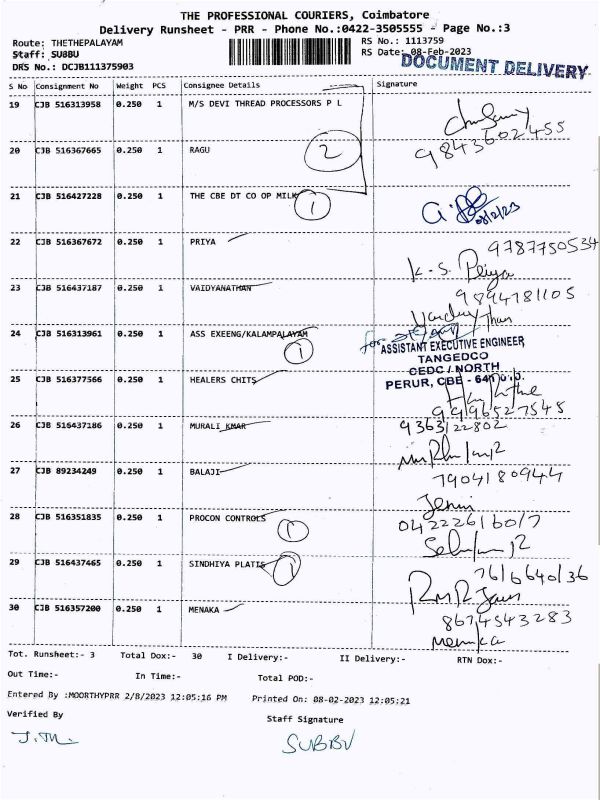 THE PROFESSIONAL COURIERS, Coimbatore
Delivery Runsheet - PRR - Phone No.:0422-3505555 - Page No.:3
Route: THETHEPALAYAM
RS No.: 1113759
Staff: SUBBU
RS Date: 08-Feb-2023
DRS No.: DCJB111375903
DOCUMENT DELIVERY
S No Consignment No Weight PCS Consignee Details Signature
19 CJB 516313958 0.250 1 M/S DEVI THREAD PROCESSORS P L
9843602455
20 CJB 516367665 0.250 1 RAGU
2
21 CJB 516427228 0.250 1 THE CBE DT CO OP MILK
1
08/2/23
22 CJB 516367672 0.250 1 PRIYA
9787750534
K. S. Priya
23 CJB 516437187 0.250 1 VAIDYANATHAN
9894781105
24 CJB 516313961 0.250 1 ASS EXEENG/KALAMPALAYAM
1
for
ASSISTANT EXECUTIVE ENGINEER
TANGEDCO
CEDC / NORTH
PERUR, CBE - 641010.
25 CJB 516377566 0.250 1 HEALERS CHITS
9996527548
26 CJB 516437186 0.250 1 MURALI KMAR
9363122802
27 CJB 89234249 0.250 1 BALAJI
7904180944
28 CJB 516351835 0.250 1 PROCON CONTROLS
1
04222616017
29 CJB 516437465 0.250 1 SINDHIYA PLATIS
1
7616640136
30 CJB 516357200 0.250 1 MENAKA
8674543283
Menaka
Tot. Runsheet:- 3 Total Dox:- 30 I Delivery:- II Delivery:- RTN Dox:-
Out Time:- In Time:- Total POD:-
Entered By :MOORTHYPRR 2/8/2023 12:05:16 PM Printed On: 08-02-2023 12:05:21
Verified By
Staff Signature
SUBBU